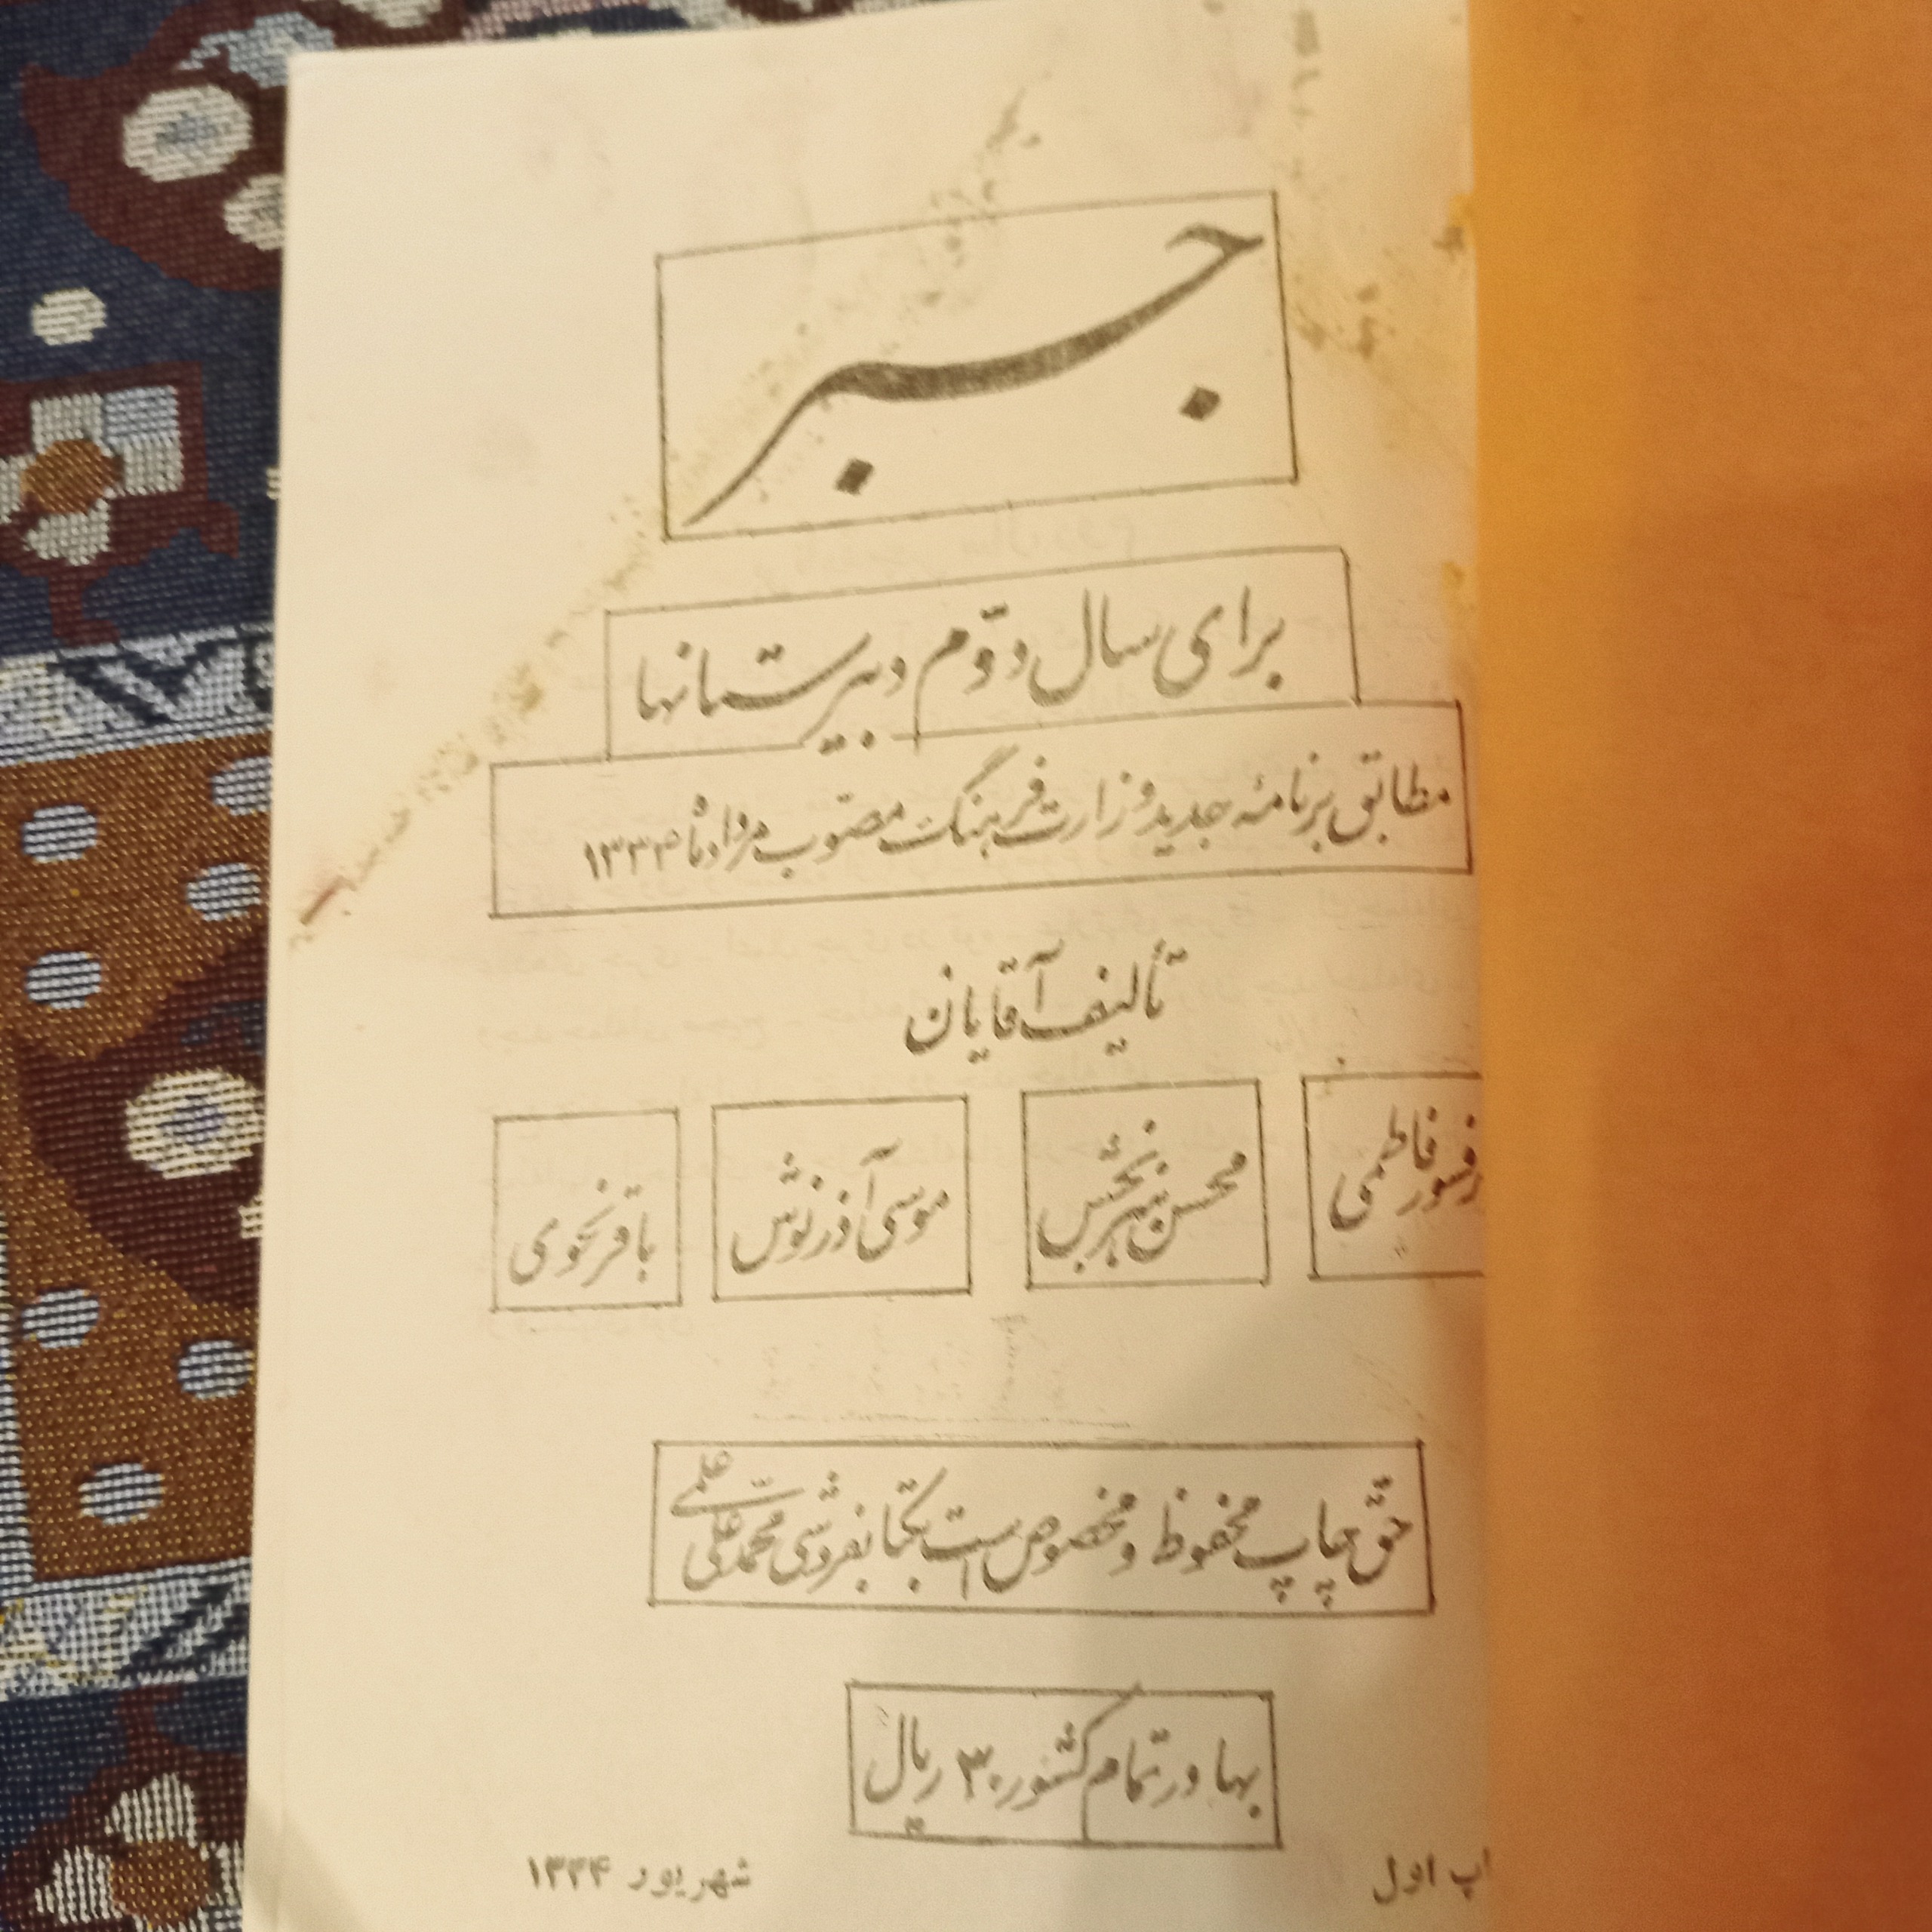 جبر
برای سال دوّم دبیرستانها
مطابق برنامهٔ جدید وزارت فرهنگ مصوّب مرداد ماه ۱۳۳۴
تألیف آقایان
فاطمی
محسن هنربخش
موسی آذرنوش
باقر نحوی
حقّ چاپ محفوظ و مخصوص است بکتابفروشی محمد علی علمی
بها در تمام کشور ۳۰ ریال
اپ اول
شهریور ۱۳۳۴